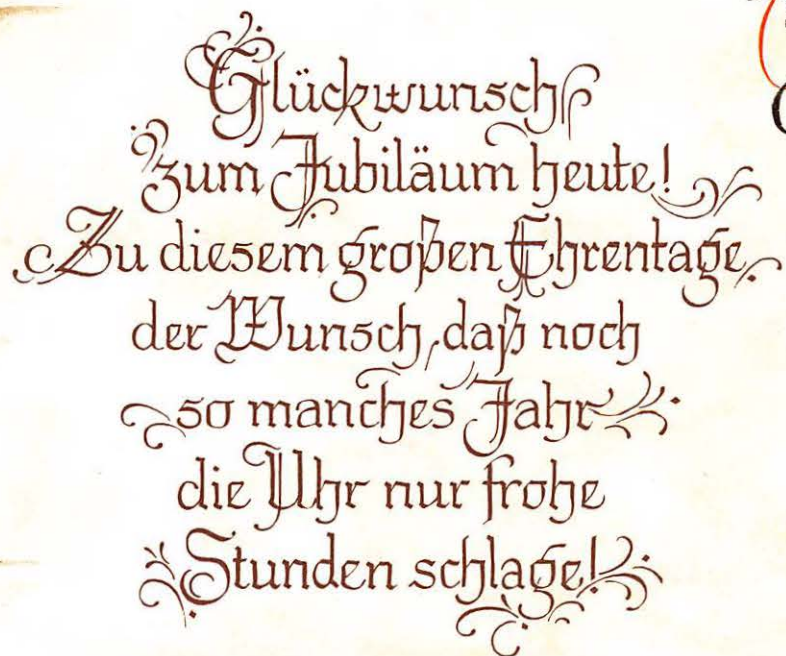 Glückwunsch
zum Jubiläum heute!
Zu diesem großen Ehrentage
der Wunsch, daß noch
so manches Jahr
die Uhr nur frohe
Stunden schlage!